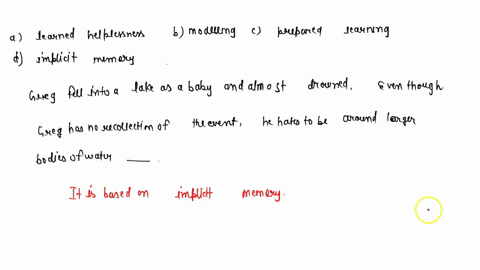 a) learned helplessness b) modelling c) prepared learning
d) implicit memory .
Greg fell into a lake as a baby and almost drowned. Even though
Greg has no recollection of the event, he hates to be around larger
bodies of water ___ .
It is based on implicit memory.